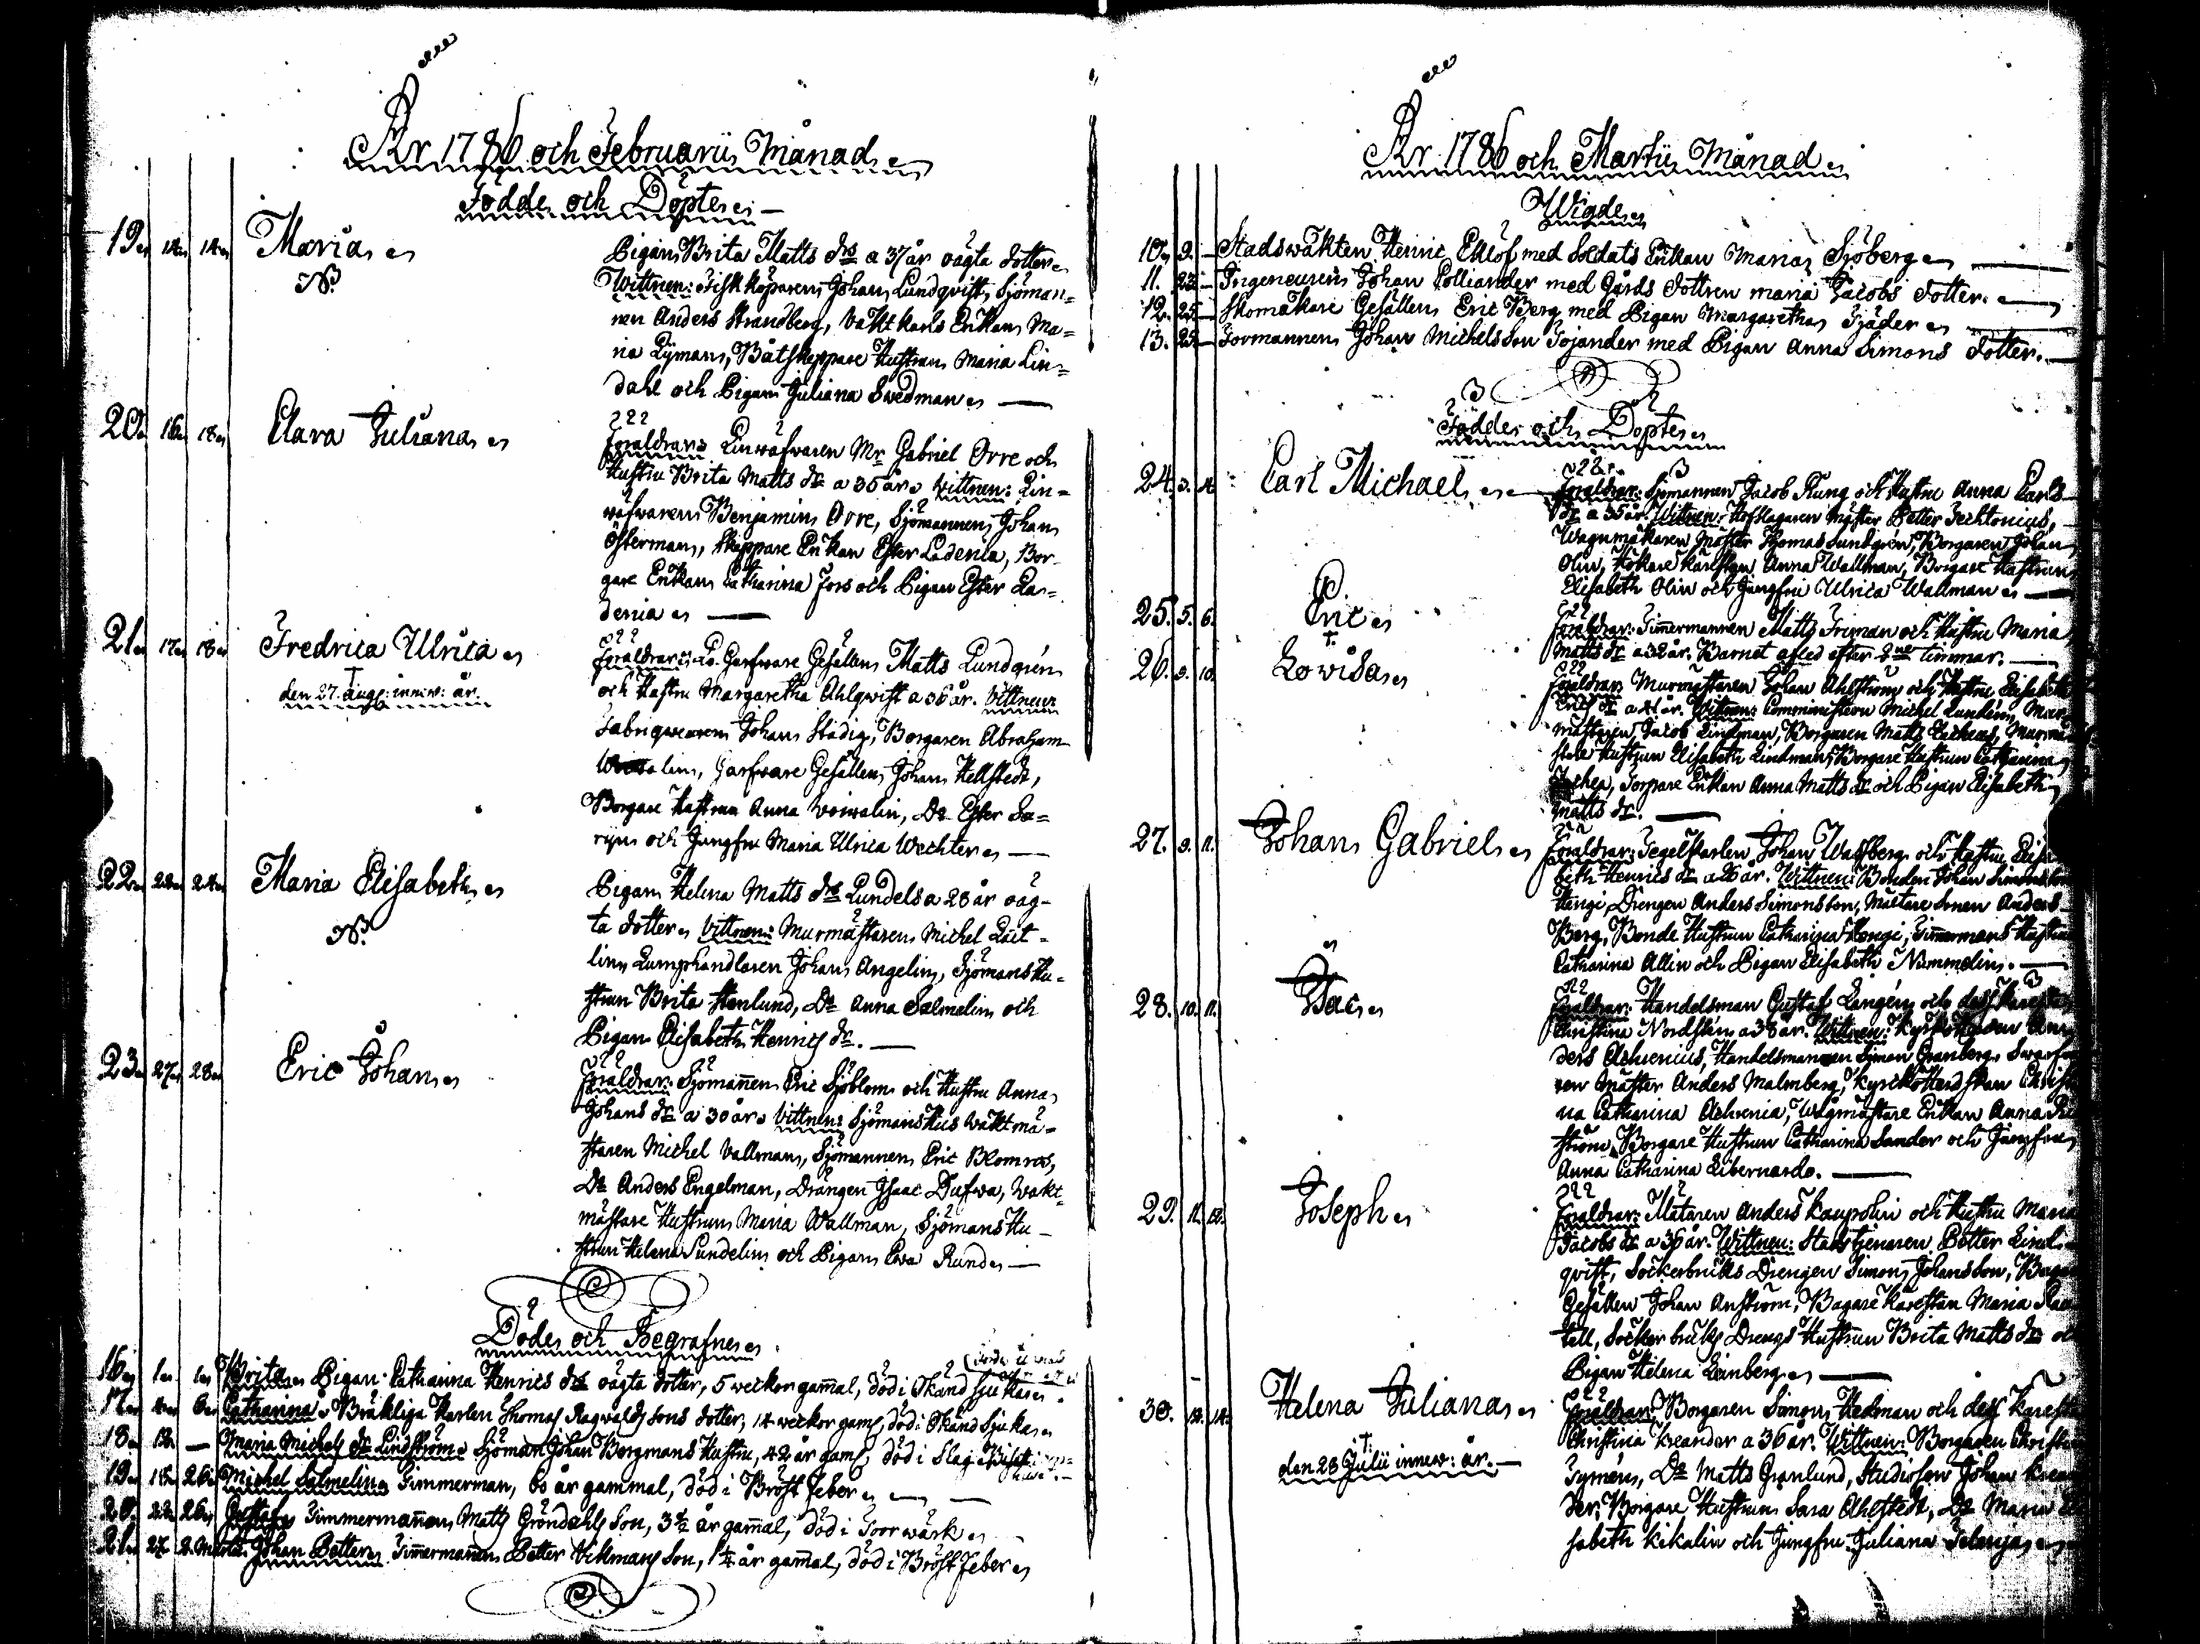 År 1786 och Februarii Månad
Födde och Döpte
19 14 14 Maria
N.
Pigans Brita Matts dr a 37 år oägta dotter
Wittnen: Fiskköparen Johan Lundqvist, Sjöman=
nen Anders Strandberg, Vaktkarls Enkan Ma=
ria Lijman, Båtskeppare Hustrun Maria Lin=
dahl och Pigan Juliana Swedman
20 16 18 Clara Juliana
Föräldrar: Linwäfwaren Mr Gabriel Orre och
Hustru Brita Matts dr a 35 år. Wittnen: Lin=
wäfwaren Benjamin Orre, Sjömannen Johan
Österman, Skeppare Enkan Ester Ladenia, Bor-
gare Enkan Catharina Fors och Pigan Ester La=
denia
21 17 18 Fredrica Ulrica
†
den 27. Aug: innew: år.
Föräldrar: Garfware Gesällen Matts Lundgrén
och Hustru Margaretha Ahlqwist a 36 år. Vittnen
Fabriqueuren Johan Städig, Borgaren Abraham
lin, Garfware Gesällen Johan Hellstedt,
Borgare Hustrun Anna Woiwalin, Do Ester Sa=
rijn och Jungfru Maria Ulrica Wechter
22 23 24 Maria Elisabeth
N.
Pigans Helena Matts dr Lundels a 28 år oäg-
ta dotter Vittnen: Murmästaren Michel Quist=
lin, Lumphandlaren Johan Angelin, Sjömans Hu=
strun Brita Stenlund, Do Anna Salmelin och
Pigan Elisabeth Henrics dr.
23 27 28 Eric Johan
Föräldrar: Sjömannen Eric Sjöblom och Hustru Anna
Johans dr a 30 år. Vittnen: Sjömanshus Waktmä=
staren Michel Vallman, Sjömannen Eric Blomros,
Do Anders Engelman, Drängen Isaac Dufwa, Wakt=
mästare Hustrun Maria Wallman, Sjömans Hu-
strun Helena Sundelin och Pigan Ewa Rund
Döde och Begrafne
16 1 1 Brita Pigan Catharina Henrics drs oägta dotter, 5 weckor gammal, död i Okänd Sjukas
17 4 6 Catharina Bräkliga Karlen Thomas Ragwaldssons dotter, 14 weckor gaml, död i Okänd Sjukas
18 12 — Maria Michels dr Lindström Sjöman Johan Borgmans Hustru, 42 år gaml, död i Slag
19 18 26 Michel Salmelin Timmerman, 60 år gammal, död i Bröst Feber
20. 22 26 Gustaf Timmermannen Matts Gröndahls Son, 3½ år gammal, död i Torrwärk
21 27 2. Martii Johan Petter Timmermannen Petter Vikmans Son, 1¼ år gammal, död i Bröst Feber
År 1786 och Martii Månad
Wigde
10 9. Stadswakten Henric Eklöf med Soldats Enkan Maria Sjöberg
11. 23 Ingeneuren Johan Colliander med Gårds dottren Maria Jacobs dotter.
12. 25 Skomakare Gesällen Eric Berg med Pigan Margaretha Fjäder
13. 25 Formannen Johan Michelsson Fojander med Pigan Anna Simons dotter.
Födde och Döpte
24. 3. 4. Carl Michael
Föräldrar: Sjömannen Jacob Rung och Hustru Anna Carls
dr a 35 år. Witnen: Hofslagaren Mäster Petter Techtonius,
Wagnmakaren Mäster Thomas Sundgren, Borgaren Johan
Olin, Hökare Käreстan Anna Wallman, Borgare Hustrun
Elisabeth Olin och Jungfru Ulrica Wallman
25. 5. 6. Eric
†
Föräldrar: Timmermannen Matts Friman och Hustru Maria
Matts dr a 32 år. Barnet afled efter 2ne timmar.
26. 9. 10. Lowisa
Föräldrar: Murmästaren Johan Ahlström och Hustru Elisabeth
Erics dr a 41 år. Witnen: Comministern Michel Lundén, Mur=
mästaren Jacob Lindman, Borgaren Matts Murmä
stare Hustrun Elisabeth Lindman, Borgare Hustrun Catharina
Torpare Enkan Anna Matts dr och Pigan Elisabeth
Matts dr.
27. 9. 11. Johan Gabriel
Föräldrar: Tegelkarlen Johan Wallberg och Hustru Elisa
beth Henrics dr a 26 år. Wittnen: Bonden Johan Simonsson
Hengi, Drengen Anders Simonsson, Mältare Sonen Anders
Berg, Bonde Hustrun Catharina Hengi, Timmermans Hustrun
Catharina Allin och Pigan Elisabeth Nummelin.
28. 10. 11. Isac
Föräldrar: Handelsman Gustaf Lengén och dess Käresta
Christina Nordstén a 38 år. Wittnen: Kyrkoherden An
ders Achrenius, Handelsmannen Simon Granberg, Swarfwa
ren Mäster Anders Malmberg, Kyrckoherdskan Christi
na Catharina Achrenia, Wågmästare Enkan Anna
ström, Borgare Hustrun Catharina Sander och Jungfru
Anna Catharina Libernardo.
29. 11. 12. Joseph
Föräldrar: Mätaren Anders Kaupolin och Hustru Maria
Jacobs dr a 36 år. Wittnen: Stadstjenaren Petter Lind
qvist, Sockerbruks Drengen Simon Johansson, Bagare
Gesällen Johan Anström, Bagare Kärestan Maria
tell, Sockerbruks Drengs Hustrun Brita Matts dr och
Pigan Helena Leinberg
30. 12. 14. Helena Juliana
†
den 28 Julii innew: år.
Föräldrar: Borgaren Simon Hedman och dess Käresta
Christina Keander a 36 år. Wittnen: Borgaren Christian
Tymén, Do Matts Granlund, Studiosen Johan Kean
der, Borgare Hustrun Sara Ahlstedt, Do Maria Eli
sabeth Kikalin och Jungfru Juliana